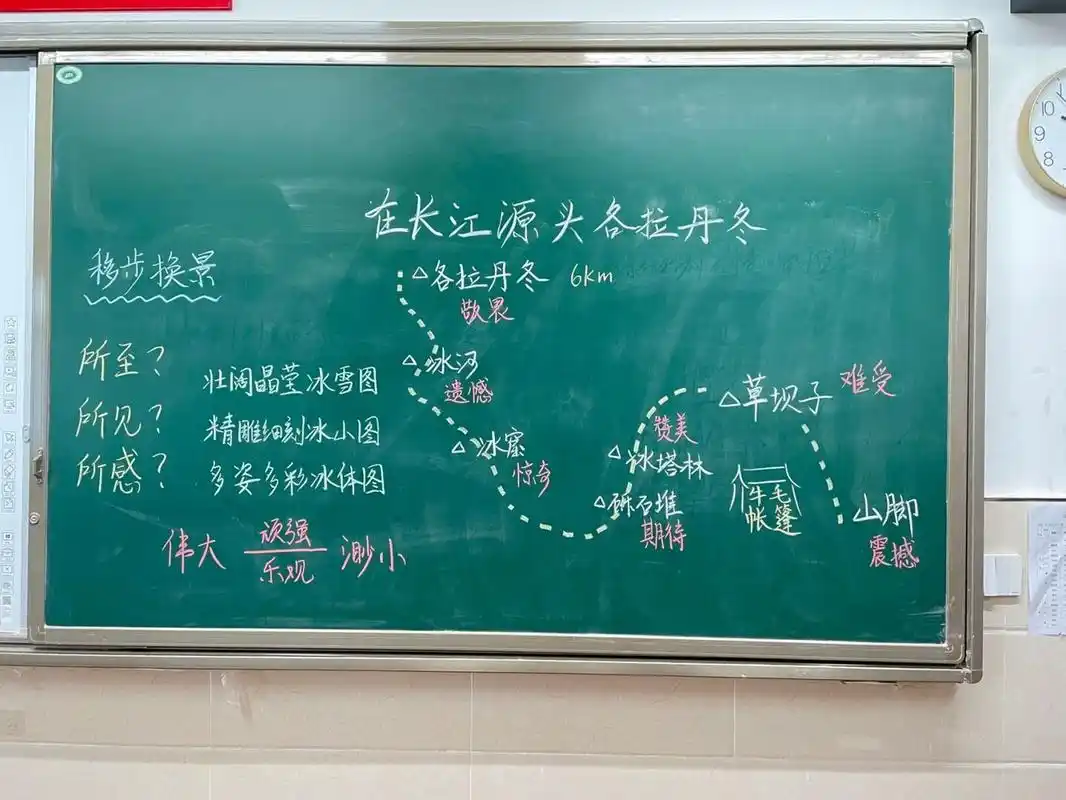 在长江源头各拉丹冬
移步换景
所至？
所见？
所感？
壮阔晶莹冰雪图
精雕细刻冰山图
多姿多彩冰体图
伟大 顽强 渺小
乐观
△各拉丹冬 6km
敬畏
△冰河
遗憾
△冰窟
惊奇
△砾石堆
期待
△冰塔林
赞美
△草坝子 难受
牛毛
帐篷
山脚
震撼
10
9
8